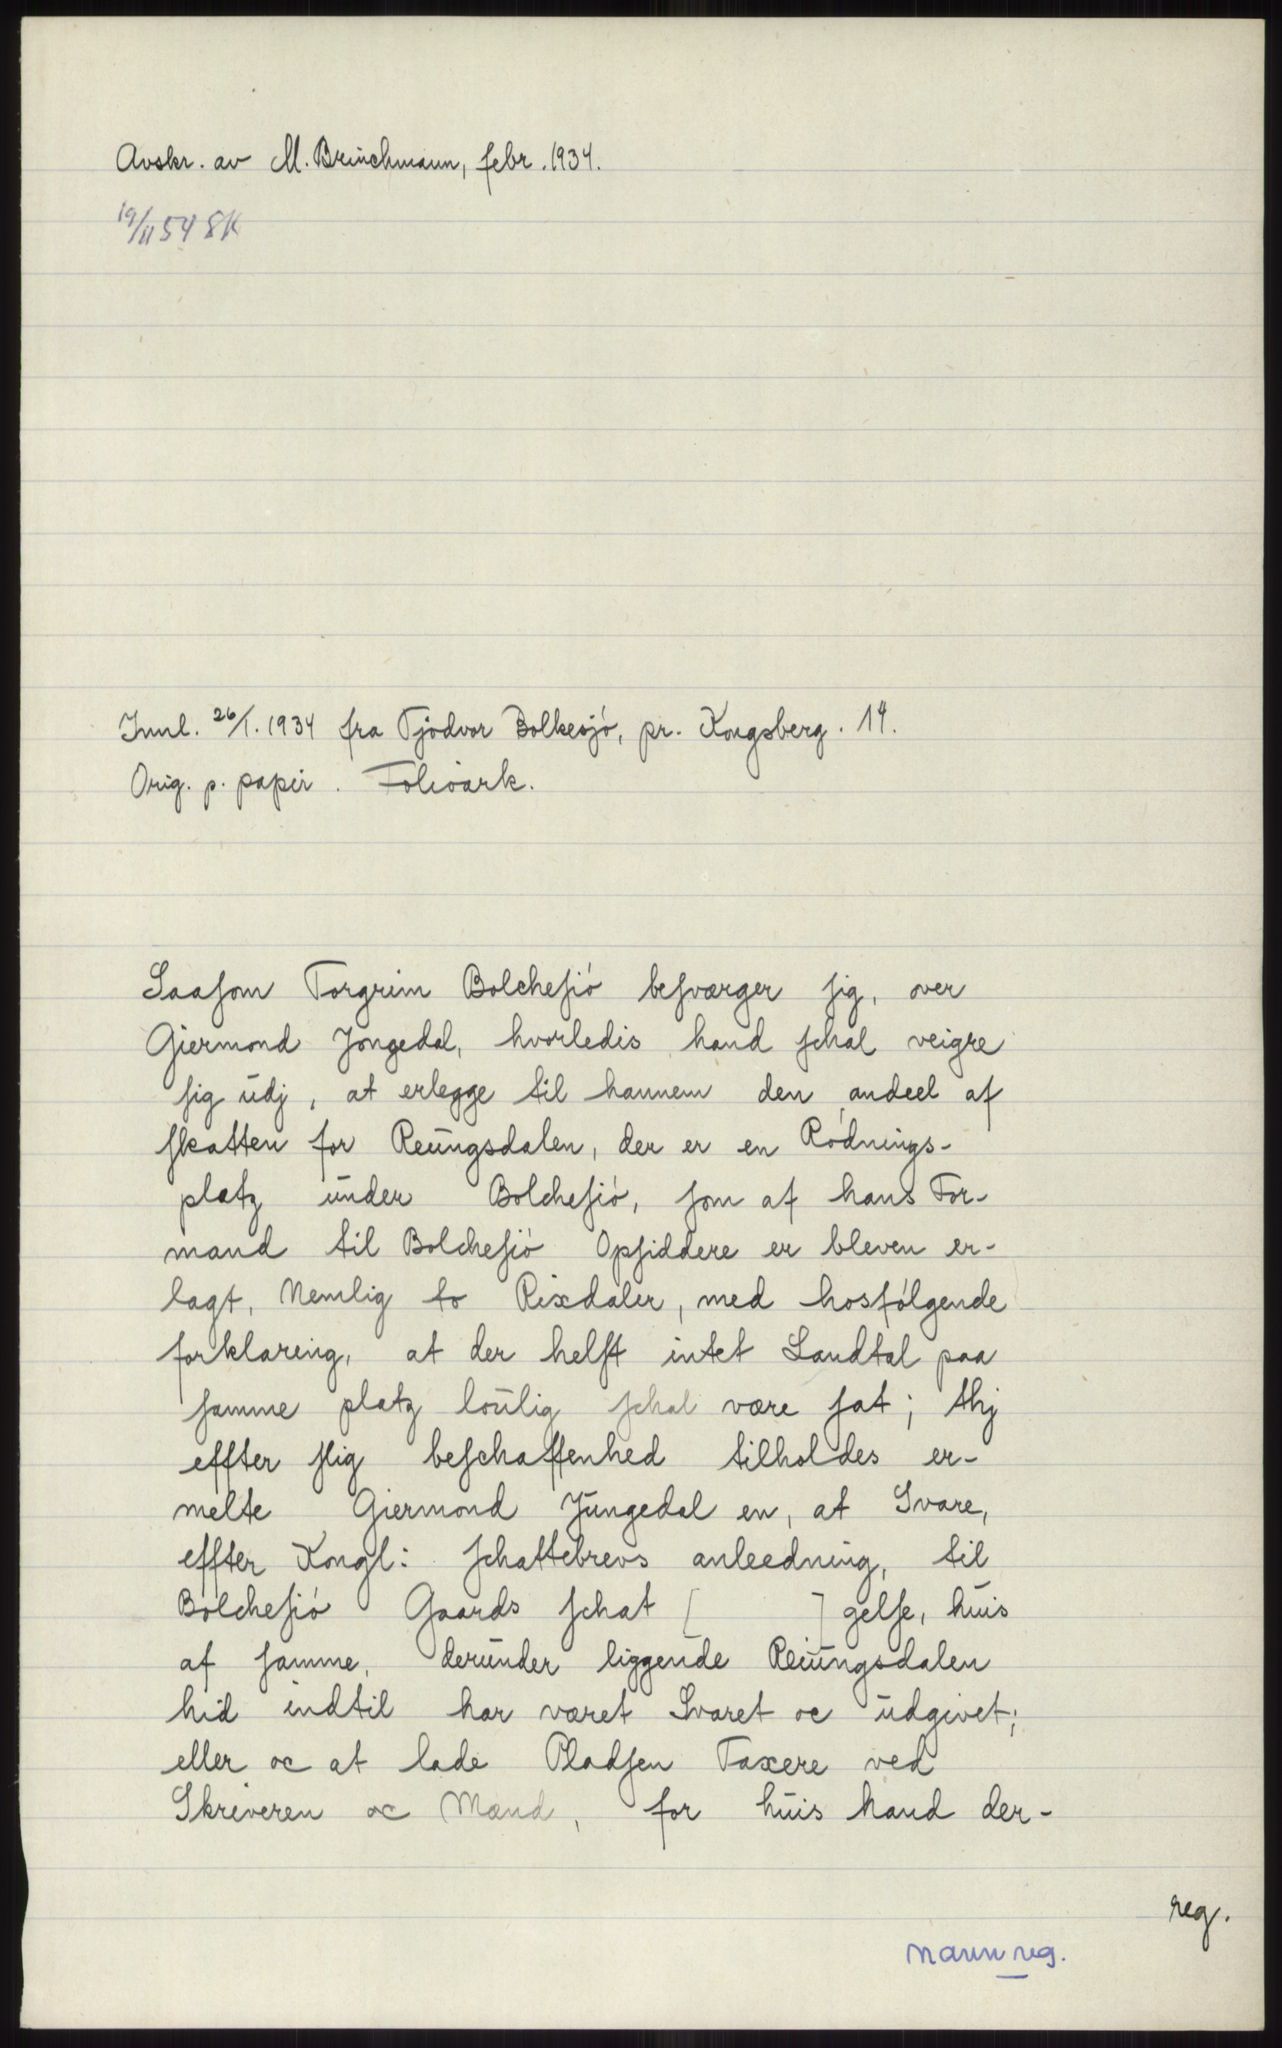 Avskr. av M. Brinchmann, febr. 1934.
19/11 54 SK
Innl. 26/1. 1934 fra Tjodvor Bolkesjö, pr. Kongsberg. 14.
Orig. p. papir. Folioark.
Saasom Torgrim Bolchesiö besværger sig, over
Giermond Jongedal, hvorledis hand schal veigre
sig udj, at erlegge til hannem den andeel af
skatten for Reüngsdalen, der er en Rödnings-
platz ünder Bolchesiö, som af hans For-
mand til Bolchesiö Opsiddere er bleven er-
lagt, Nemlig to Rixdaler, med hosfölgende
forklaring, at der helst intet Landtal paa
samme platz loülig schal være sat; thj
effter slig beschaffenhed tilholdes er-
melte Giermond Jüngedal en, at Svare,
effter Kongl: schattebrevs anleedning, til
Bolchesiö Gaards schat [ ] gelse, hüis
af samme, deründer liggende Reiüngsdalen
hid indtil har været Svaret oc üdgivet;
eller oc at lade Pladsen Taxere ved
Skriveren oc Mænd, for hüis hand der-
reg.
navnreg.